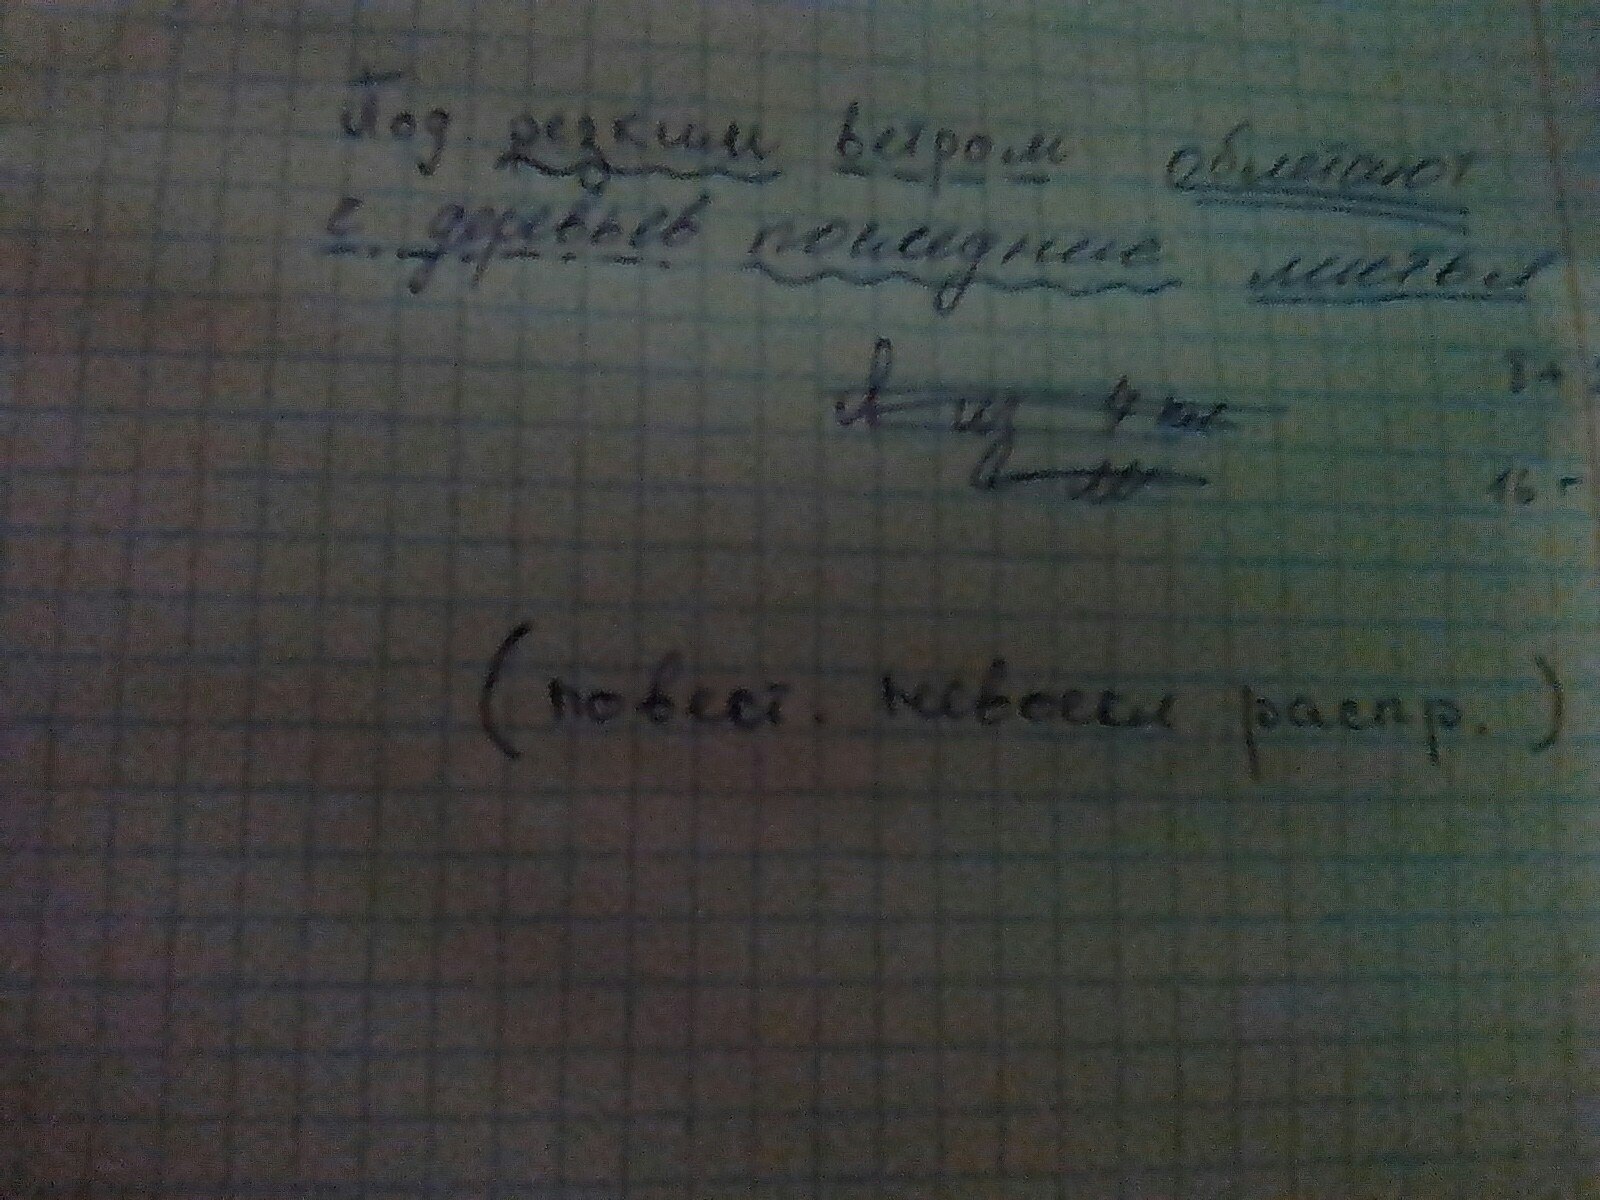 Под резким ветром облетают
с деревьев последние листья
8+
из 4
16 -
(повест. невоскл распр.)